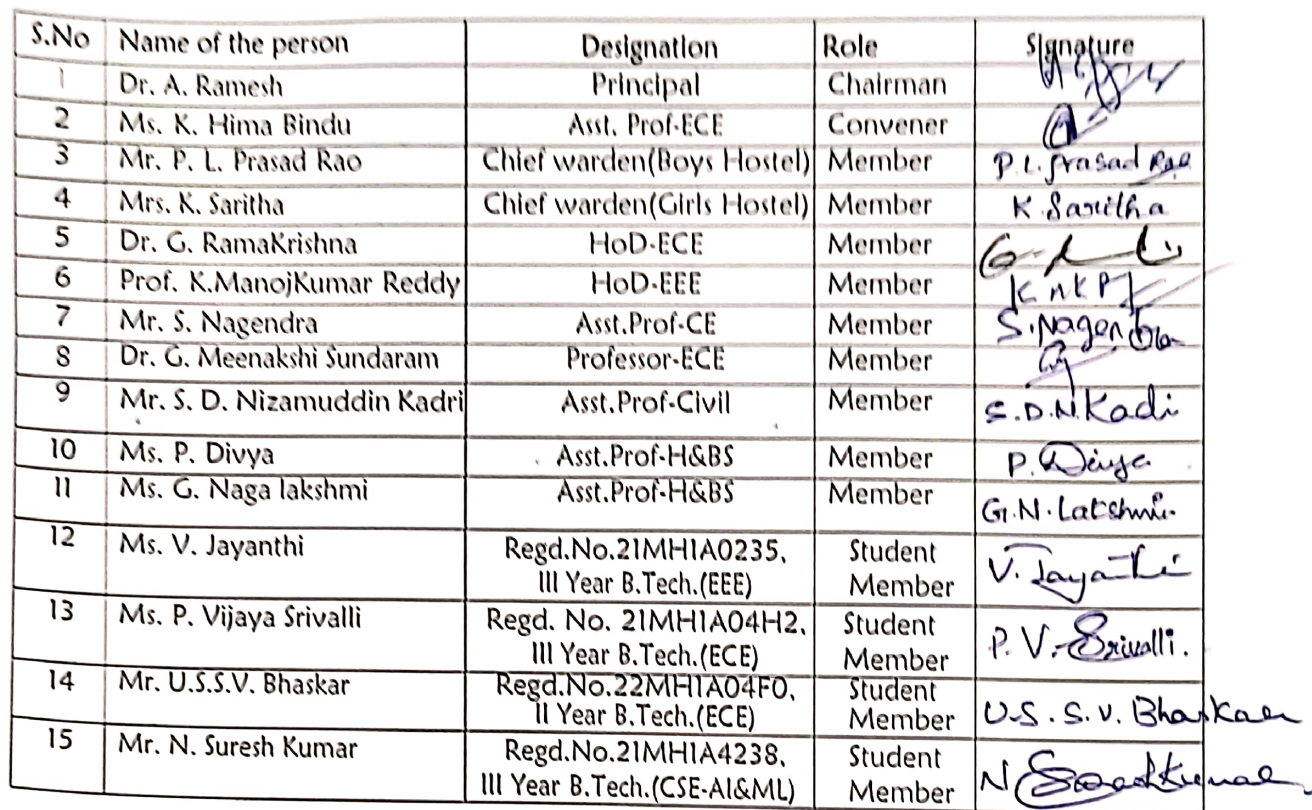 S.No Name of the person Designation Role Signature
1 Dr. A. Ramesh Principal Chairman
2 Ms. K. Hima Bindu Asst. Prof-ECE Convener
3 Mr. P. L. Prasad Rao Chief warden(Boys Hostel) Member P. L. Prasad Rao
4 Mrs. K. Saritha Chief warden(Girls Hostel) Member K. Saritha
5 Dr. G. RamaKrishna HoD-ECE Member
6 Prof. K.ManojKumar Reddy HoD-EEE Member
7 Mr. S. Nagendra Asst.Prof-CE Member S. Nagendra
8 Dr. G. Meenakshi Sundaram Professor-ECE Member
9 Mr. S. D. Nizamuddin Kadri Asst.Prof-Civil Member S.D.N.Kadi
10 Ms. P. Divya Asst.Prof-H&BS Member P. Divya
11 Ms. G. Naga lakshmi Asst.Prof-H&BS Member G.N.Lakshmi
12 Ms. V. Jayanthi Regd.No.21MH1A0235, Student V. Jayanthi
III Year B.Tech.(EEE) Member
13 Ms. P. Vijaya Srivalli Regd. No. 21MH1A04H2, Student P. V. Srivalli.
III Year B.Tech.(ECE) Member
14 Mr. U.S.S.V. Bhaskar Regd.No.22MH1A04F0, Student
II Year B.Tech.(ECE) Member U.S.S.V. Bhaskar
15 Mr. N. Suresh Kumar Regd.No.21MH1A4238, Student
III Year B.Tech.(CSE-AI&ML) Member N Suresh Kumar